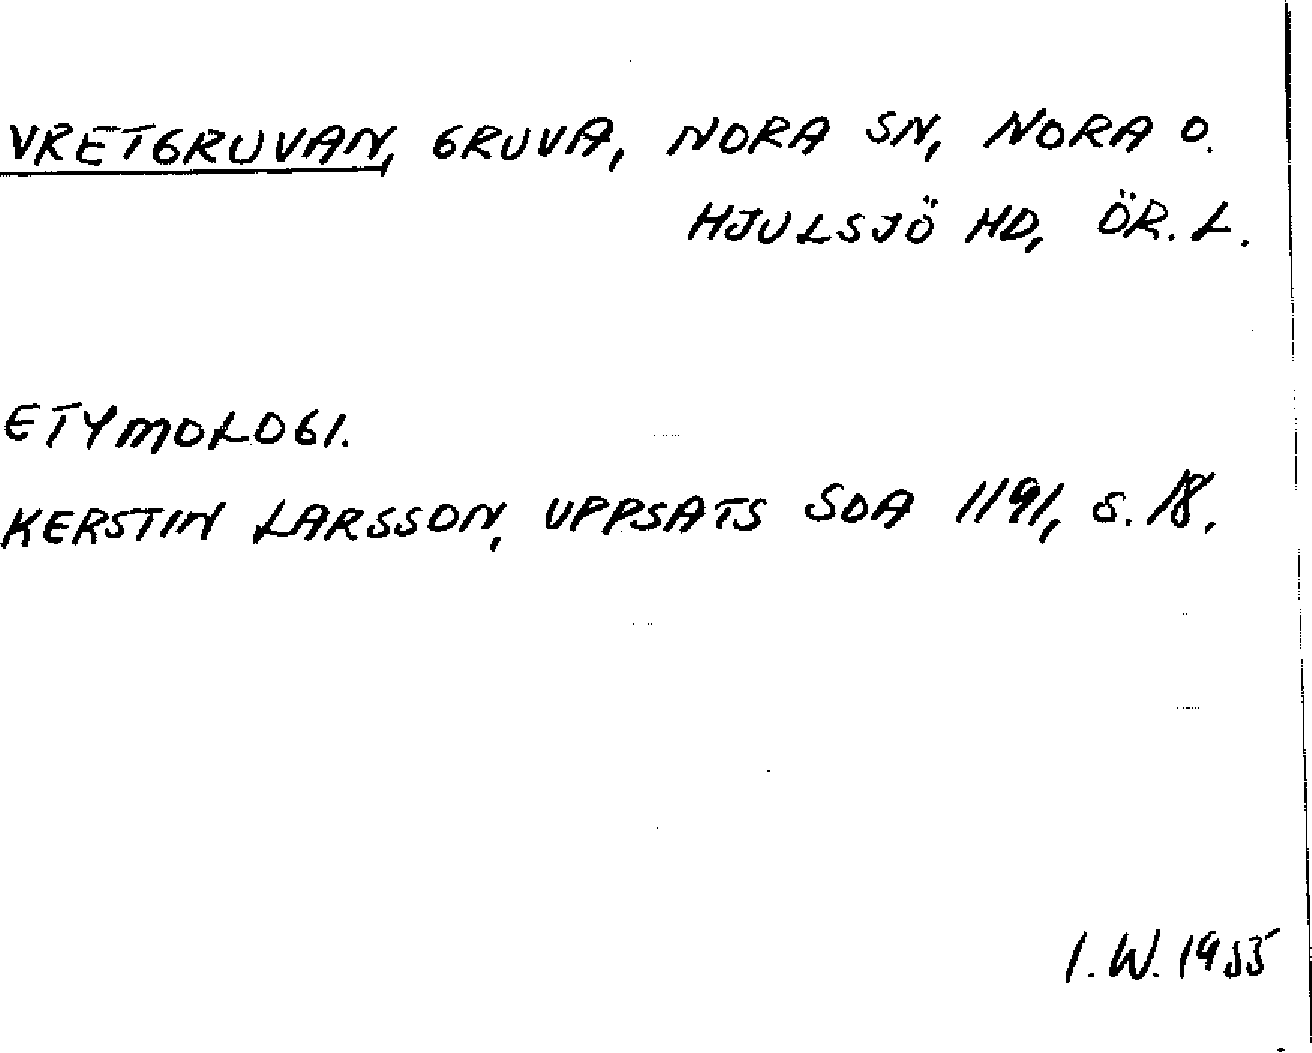 VRETGRUVAN, GRUVA, NORA SN, NORA O.
HJULSJÖ HD, ÖR. L.
ETYMOLOGI.
KERSTIN LARSSON, UPPSATS SOA 1191, S. 18.
I. W. 1955